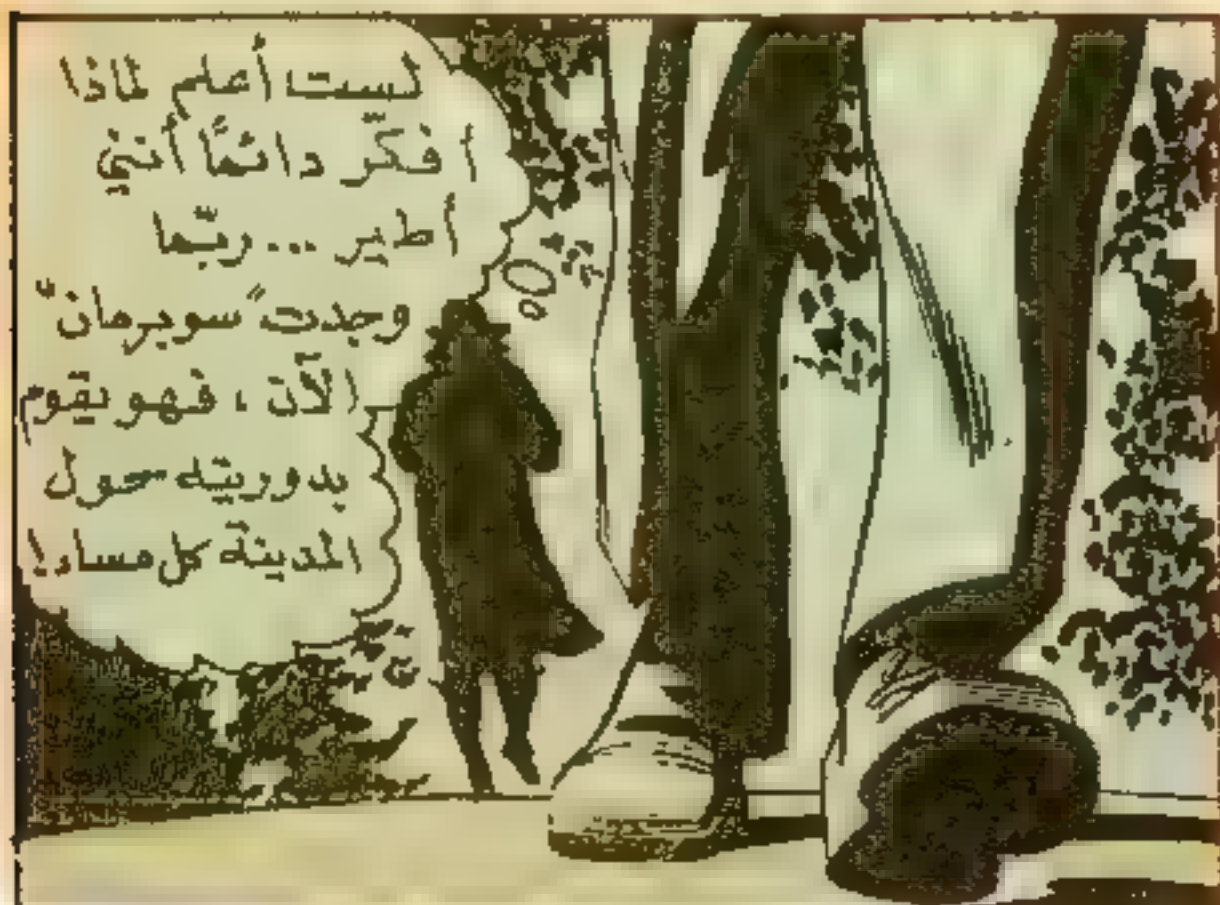 لست أعلم لماذا
أفكّر دائمًا أنني
أطير ... ربّما
وجدت "سوبرمان"
الآن ، فهو يقوم
بدوريته حول
المدينة كل مساء!